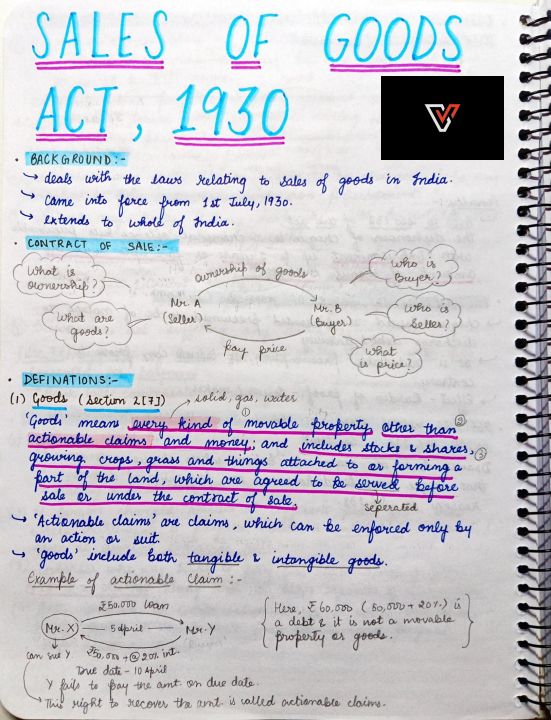 SALES OF GOODS
ACT, 1930
• BACKGROUND:-
↳ deals with the laws relating to sales of goods in India.
↳ Came into force from 1st July, 1930.
↳ extends to whole of India.
• CONTRACT OF SALE:-
What is ownership?
ownership of goods
Who is Buyer?
Mr. A (Seller)
Mr. B (Buyer)
What are goods?
Who is Seller?
pay price
What is price?
• DEFINATIONS:-
(1) Goods (Section 2[7])
solid, gas, water
'Goods' means every kind of movable property other than
①
②
actionable claims and money; and includes stocks & shares,
③
growing crops, grass and things attached to or forming a
part of the land, which are agreed to be served before
sale or under the contract of sale.
seperated
↳ 'Actionable claims' are claims, which can be enforced only by
an action or suit.
↳ 'goods' include both tangible & intangible goods.
Example of actionable Claim :-
₹50,000 loan
Mr. X
5 April
Mr. Y
{ Here, ₹60,000 (50,000 + 20%) is
a debt & it is not a movable
property or goods. }
can sue Y
₹50,000 + @ 20% int.
Due date - 10 April
Y fails to pay the amt. on due date.
↳ This right to recover the amt. is called actionable claims.